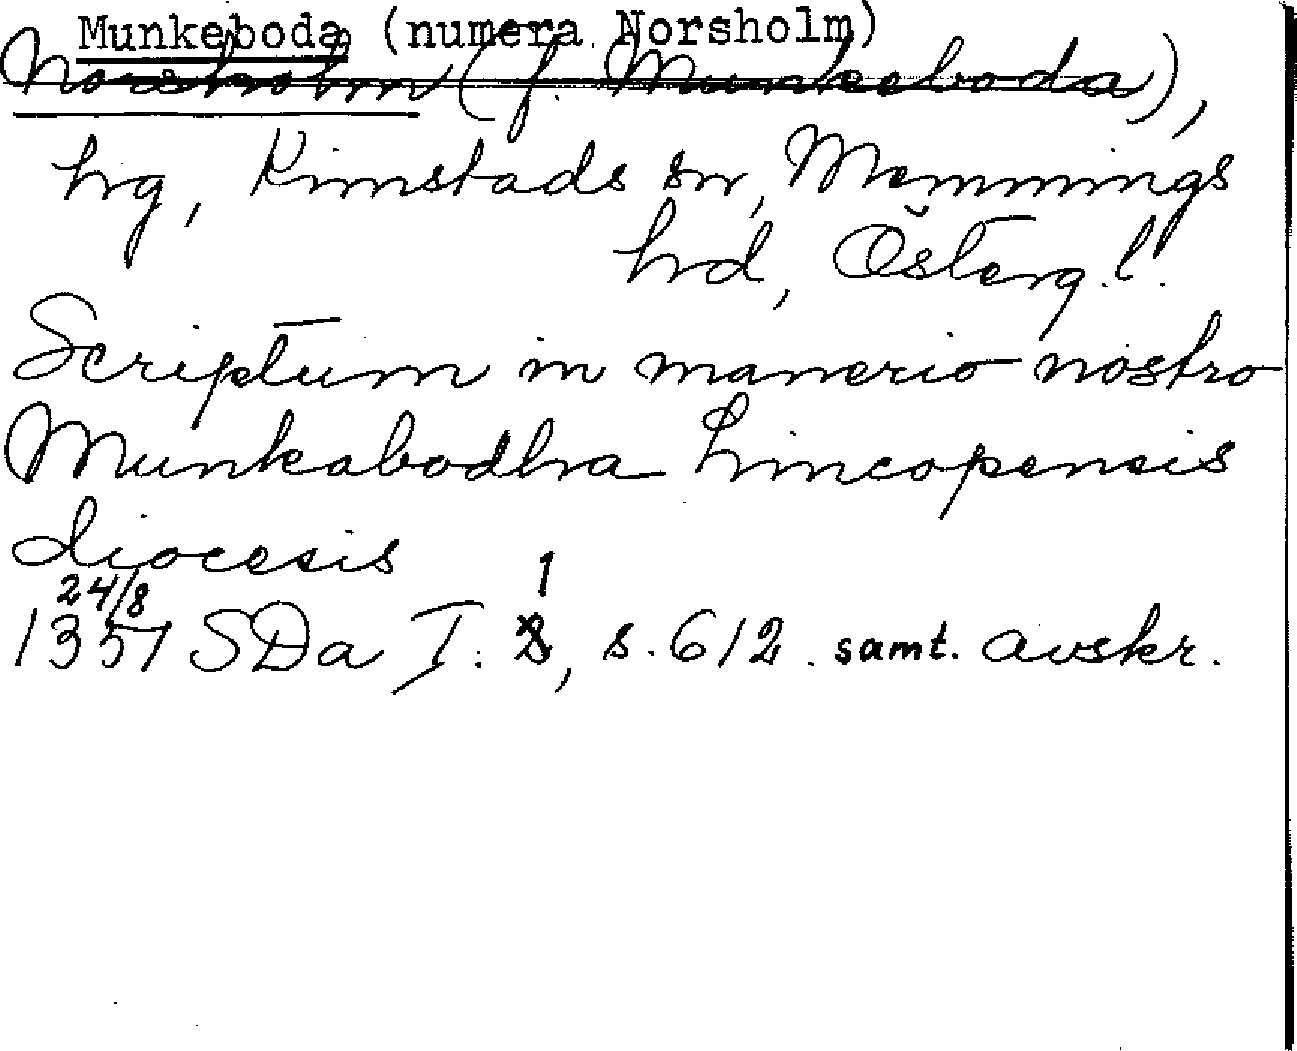 Munkeboda (numera Norsholm)
Norsholm (f. Munkeboda),
hg, Kimstads sn, Memmings
hrd, Österg.l.
Scriptum in manerio nostro
Munkabodha Lincopensis
diocesis
24/8 1
1357 SDa I: 8, s. 612. samt. avskr.